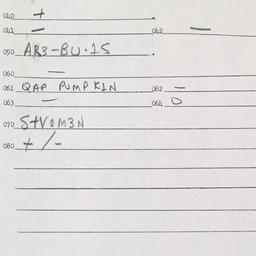 040 +
041 — 042 —
050 AR3-BU.1S
060 —
061 QAP PUMPKIN 062 —
063 — 064 O
070 S+VOM3N
080 +/-